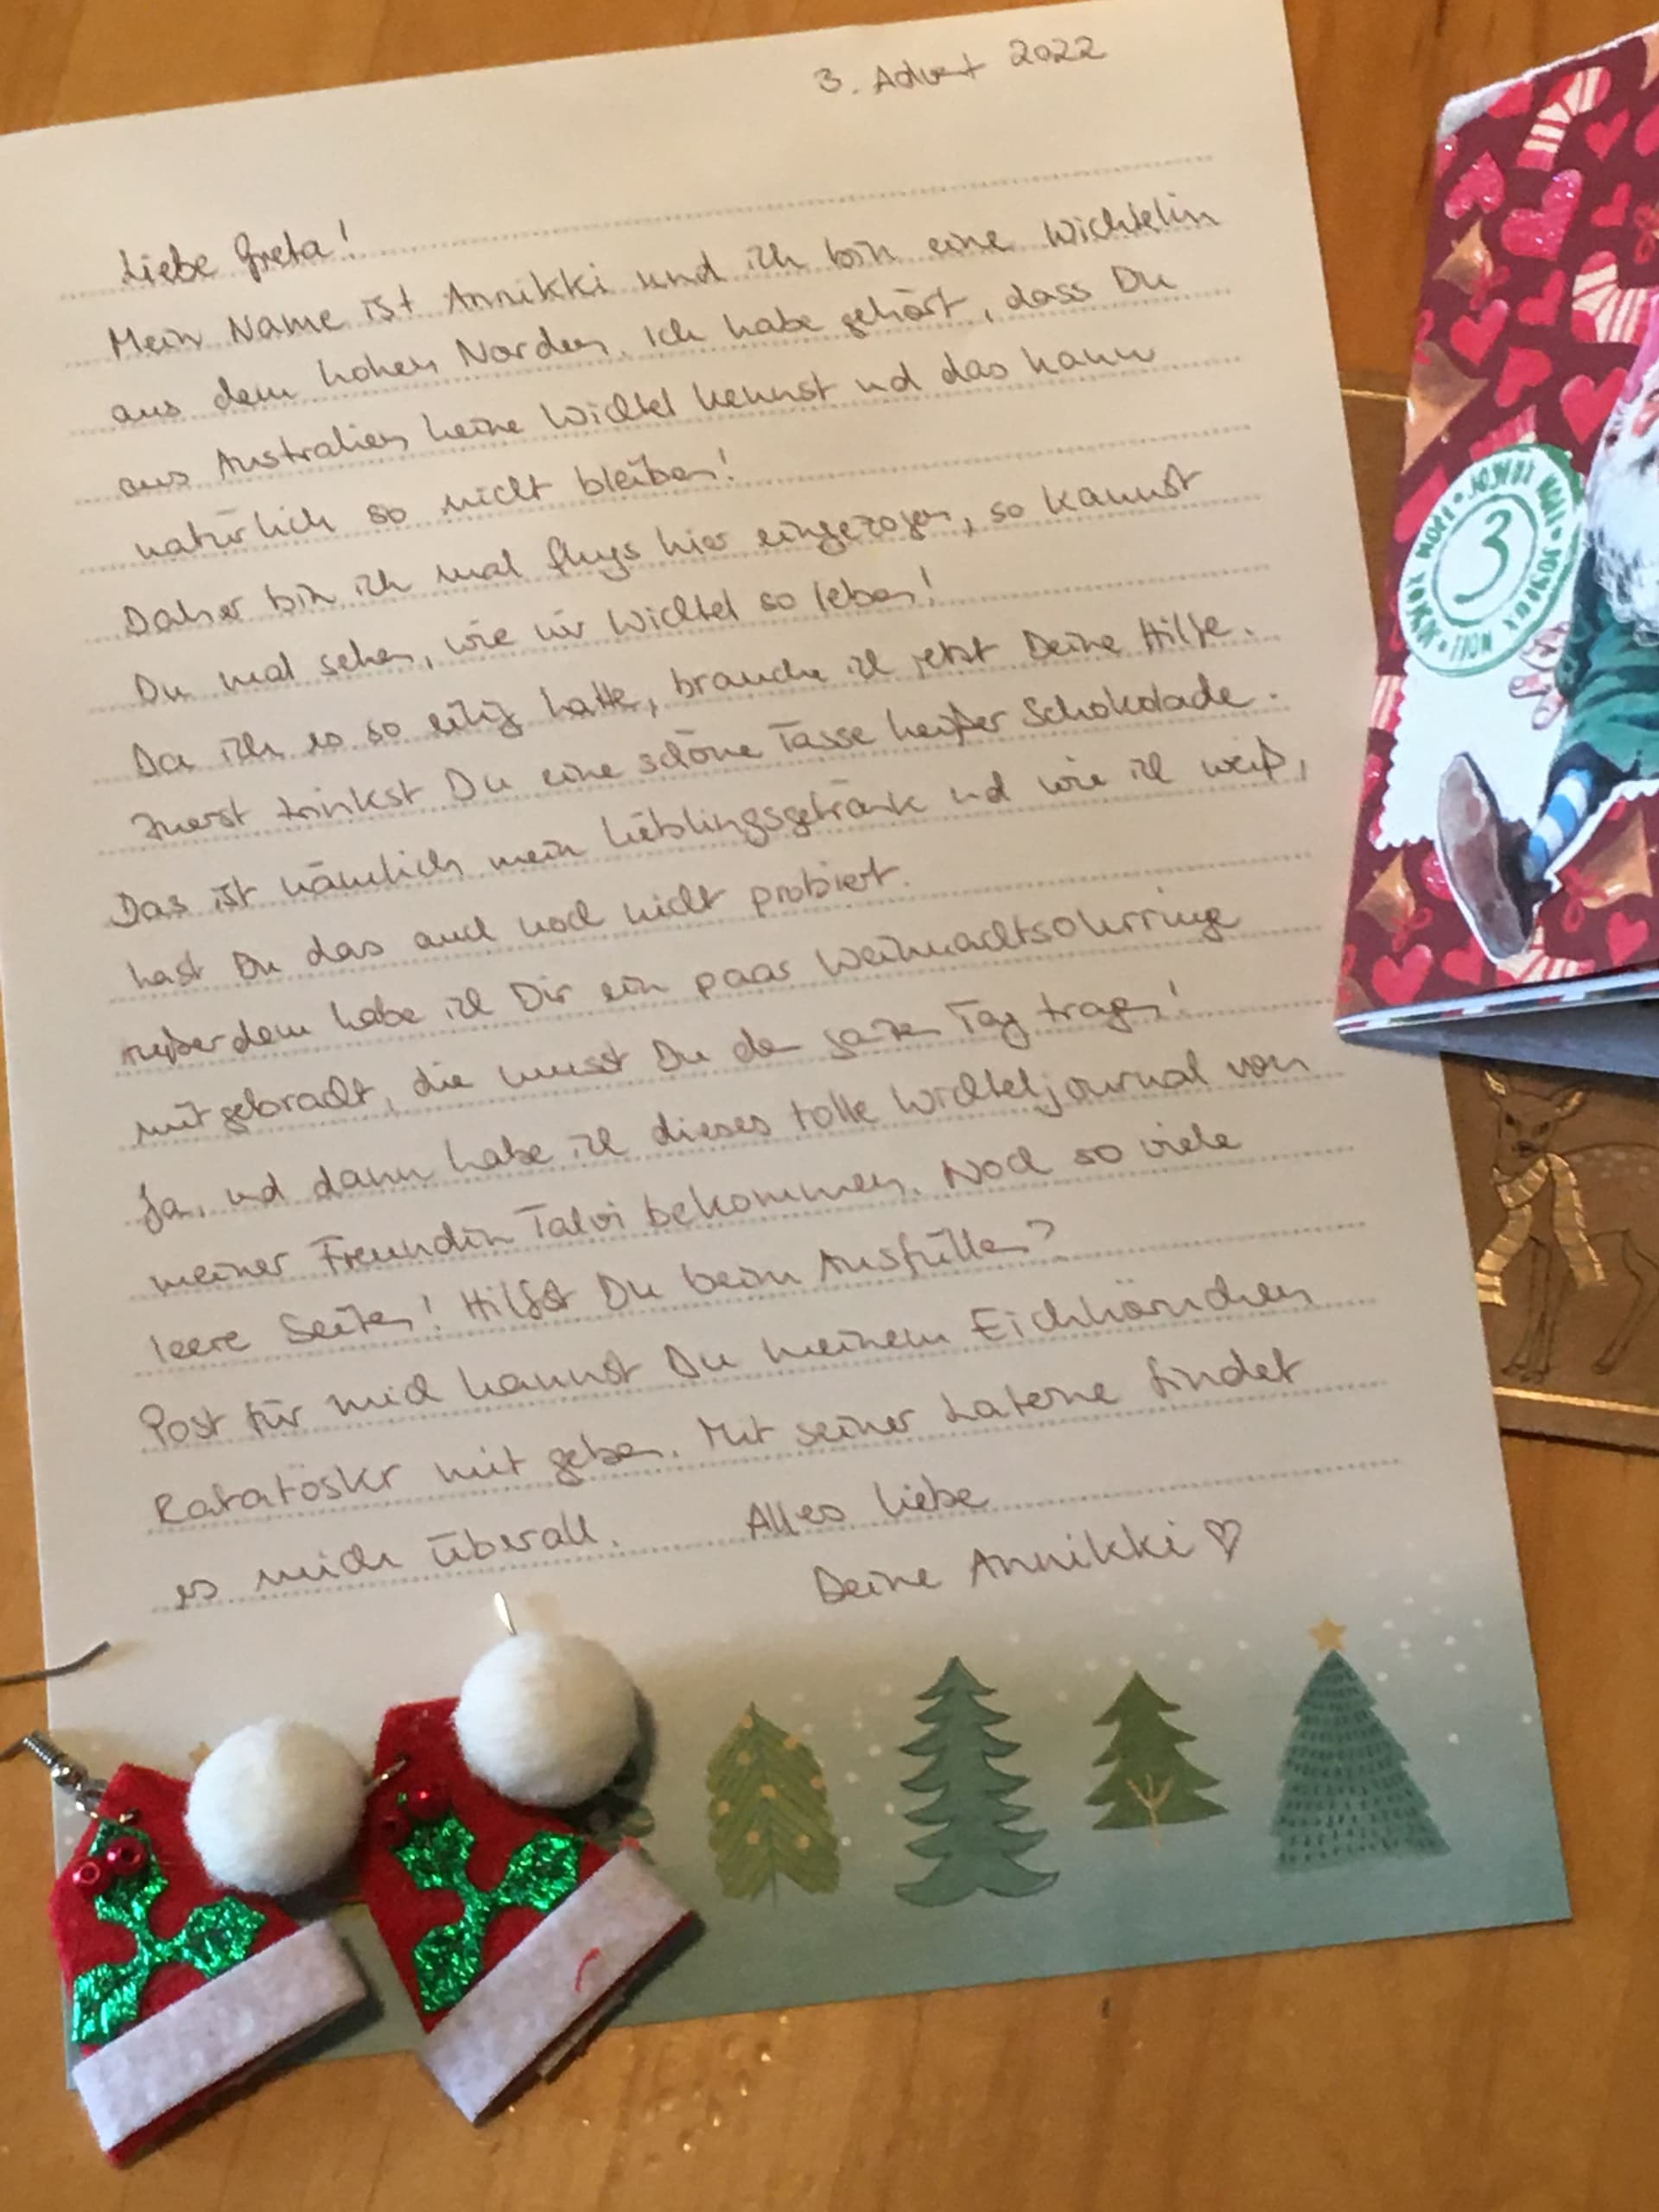 3. Advent 2022
Liebe Greta!
Mein Name ist Annikki und ich bin eine Wichtelin
aus dem hohen Norden. Ich habe gehört, dass Du
aus Australien keine Wichtel kennst und das kann
natürlich so nicht bleiben!
Daher bin ich mal flugs hier eingezogen, so kannst
Du mal sehen, wie wir Wichtel so leben!
Da ich es so eilig hatte, brauche ich jetzt Deine Hilfe.
Zuerst trinkst Du eine schöne Tasse heißer Schokolade.
Das ist nämlich mein Lieblingsgetränk und wie ich weiß,
hast Du das auch noch nicht probiert.
Außerdem habe ich Dir ein paar Weihnachtsohrringe
mitgebracht, die musst Du den ganzen Tag tragen!
Ja, und dann habe ich dieses tolle Wichteljournal von
meiner Freundin Talvi bekommen. Noch so viele
leere Seiten! Hilfst Du beim Ausfüllen?
Post für mich kannst Du meinem Eichhörnchen
Ratatöskr mit geben. Mit seiner Laterne findet
es mich überall. Alles Liebe
Deine Annikki ♡
3